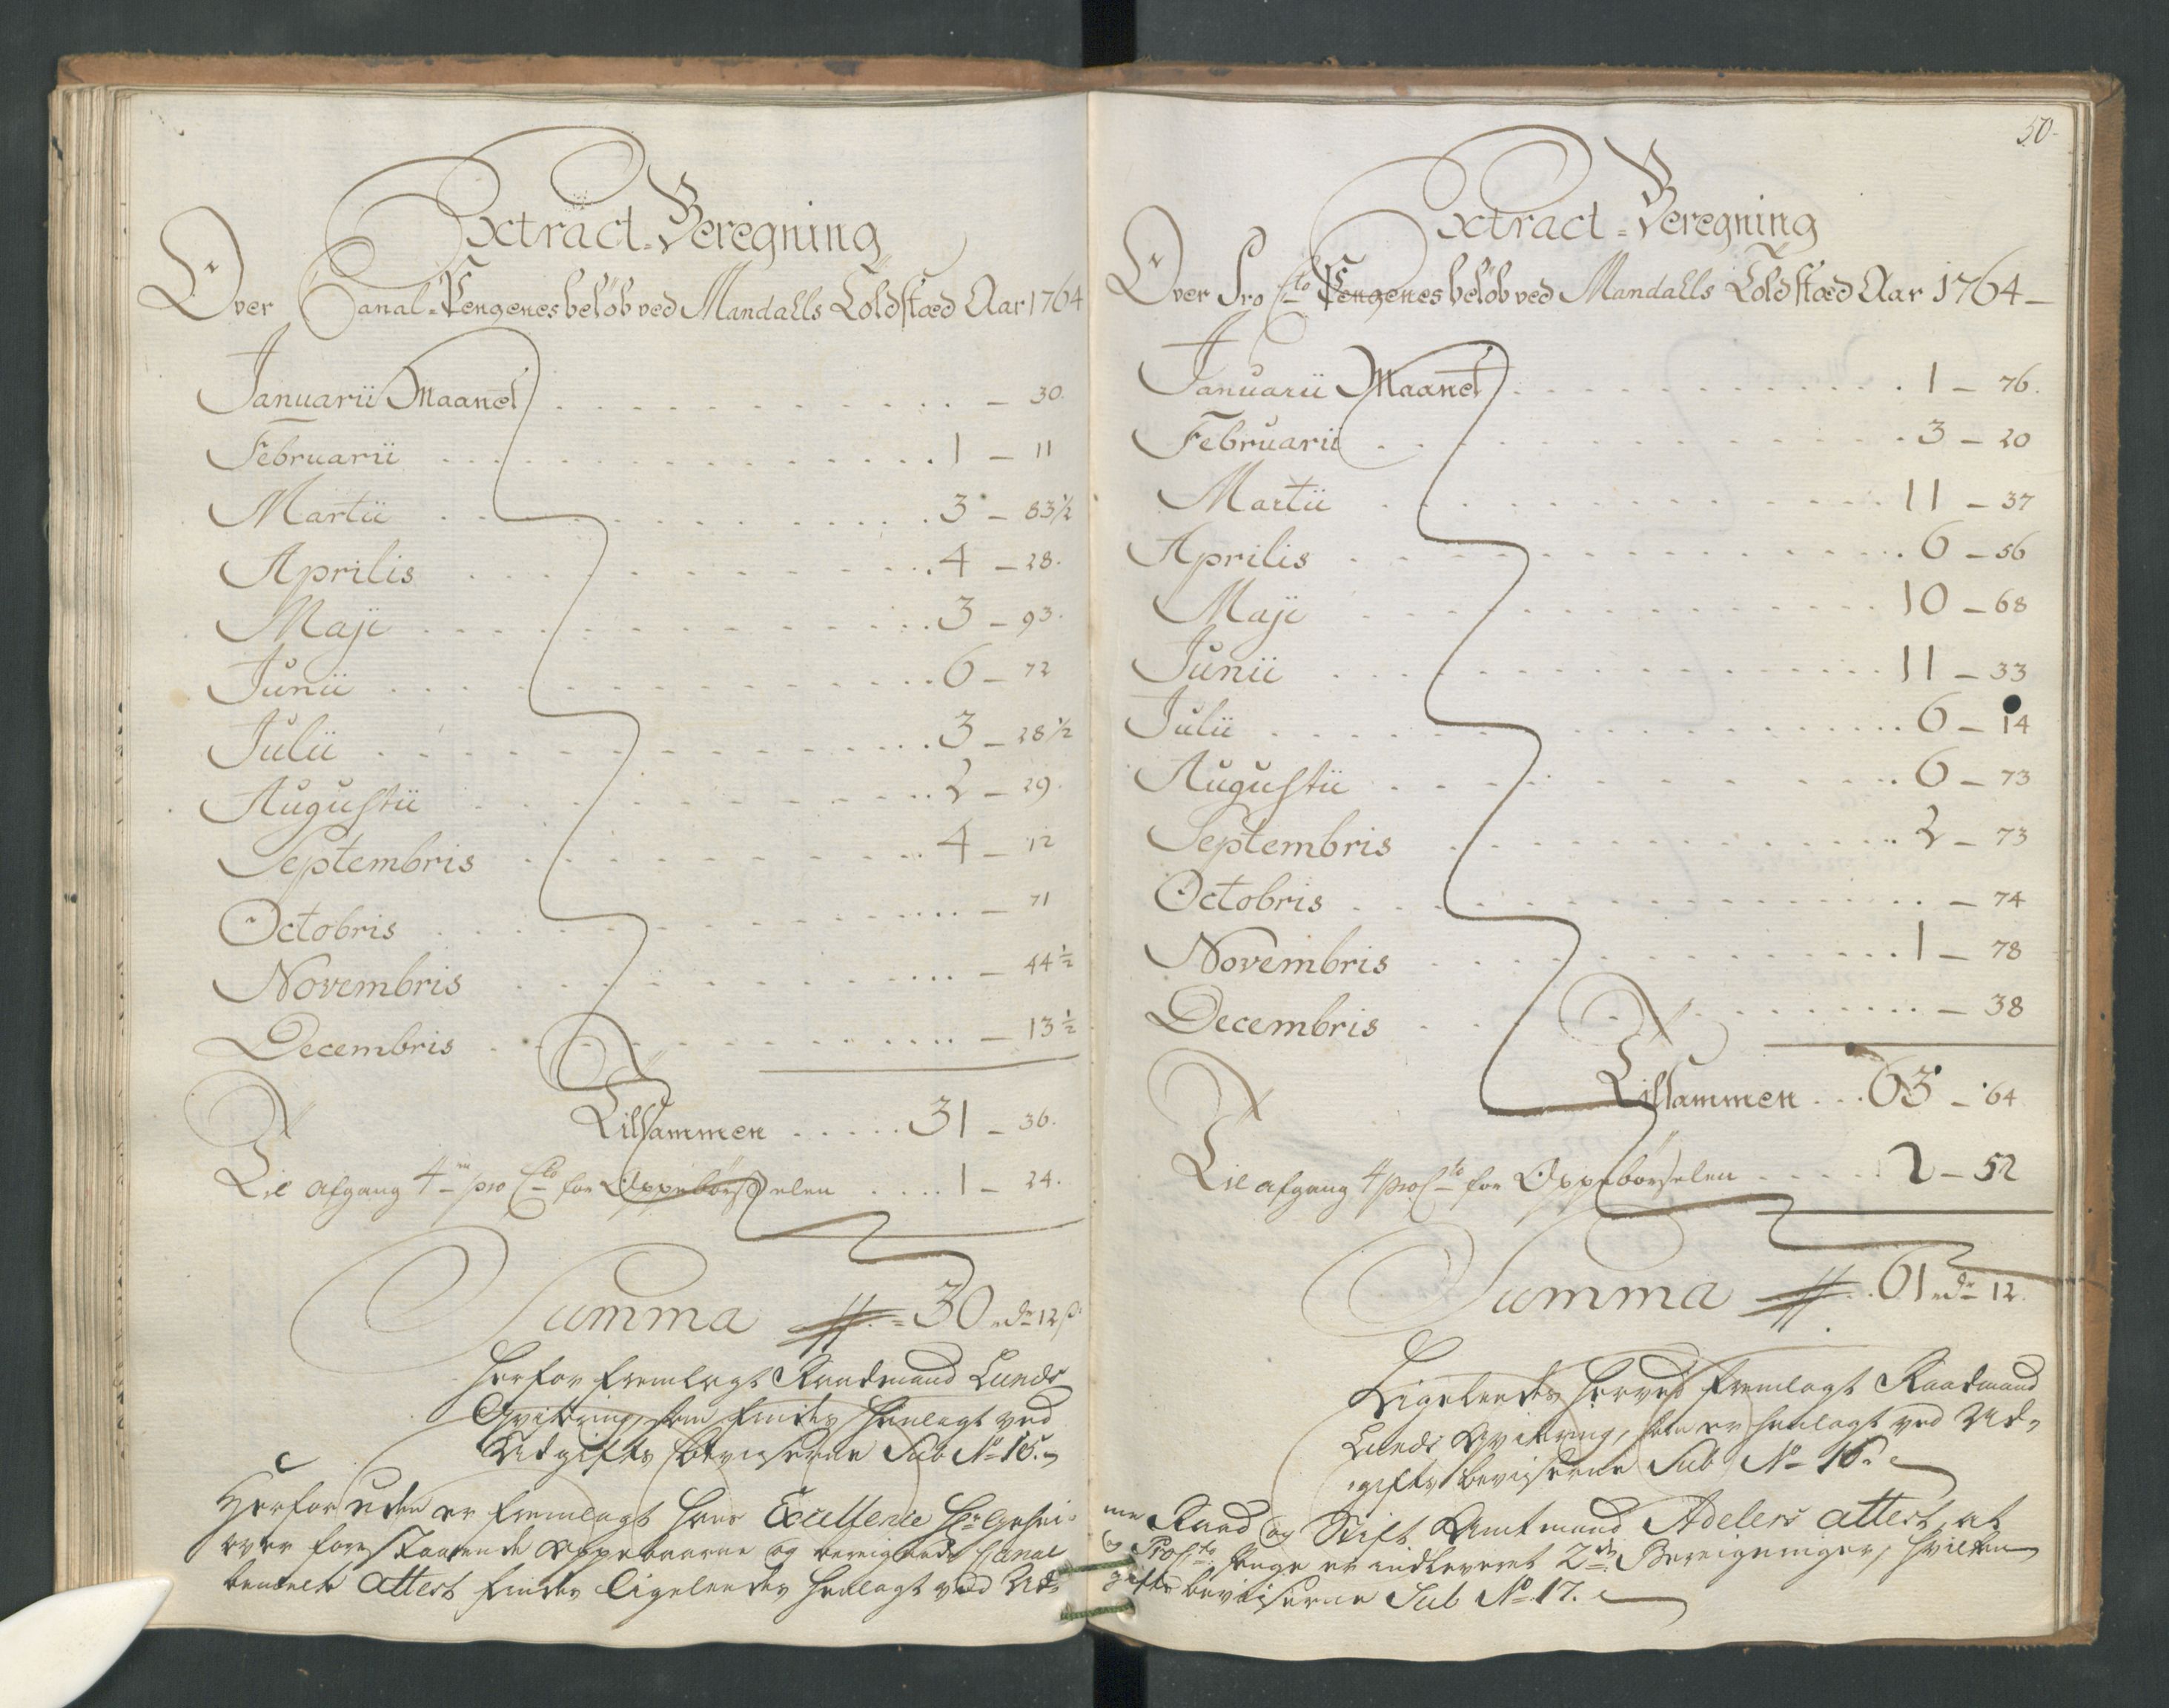 Extract-Beregning
Over Canal-Pengenes beløb ved Mandalls Toldstæd Aar 1764
Januarii Maanet . . . . . . . . . . . . — 30.
Februarii . . . . . . . . . . . . 1 — 11
Martii . . . . . . . . . . . . 3 — 83½
Aprilis . . . . . . . . . . . . 4 — 28.
Maji . . . . . . . . . . . . 3 — 93.
Junii . . . . . . . . . . . . 6 — 72
Julii . . . . . . . . . . . . 3 — 28½
Augustii . . . . . . . . . . . . 2 — 29.
Septembris . . . . . . . . . . . . 4 — 12
Octobris . . . . . . . . . . . . — 71
Novembris . . . . . . . . . . . . — 44½
Decembris . . . . . . . . . . . . — 13½
Tilsammen . . . . . 31 — 36.
Til afgang 4re pro Cto for Oppebørselen . . . . 1 — 24.
Summa 30 dr 12 s.
Herfor fremlagt Raadmand Lunds
Qvittering, som findes henlagt ved
Udgifts beviiserne Sub No 15.
Herforuden er fremlagt Hans Excellence Hr Gehei-
over forestaaende oppebaarne og bereignede Canal
bemelte attest findes ligeledes henlagt ved Ud-
50.
Extract-Beregning
Over Pro Cto Pengenes beløb ved Mandalls Toldstæd Aar 1764 —
Januarii Maanet . . . . . . . . . . . . 1 — 76.
Februarii . . . . . . . . . . . . 3 — 20
Martii . . . . . . . . . . . . 11 — 37
Aprilis . . . . . . . . . . . . 6 — 56
Maji . . . . . . . . . . . . 10 — 68
Junii . . . . . . . . . . . . 11 — 33
Julii . . . . . . . . . . . . 6 — 14
Augustii . . . . . . . . . . . . 6 — 73
Septembris . . . . . . . . . . . . 2 — 73
Octobris . . . . . . . . . . . . — 74
Novembris . . . . . . . . . . . . 1 — 78
Decembris . . . . . . . . . . . . — 38
Tilsammen . . . 63 — 64
Til afgang 4 pro Cto for Oppebørselen . . . . . 2 — 52
Summa 61 dr 12.
Ligeledes herved fremlagt Raadmand
Lunds Qvitering, som er henlagt ved Ud-
gifts beviiserne Sub No 16.
me Raad og Stift Amtmand Adelers attest, at
og Pro Cto Penge er indleveret 2de Bereigninger, hvilken
gifts beviiserne Sub No 17.